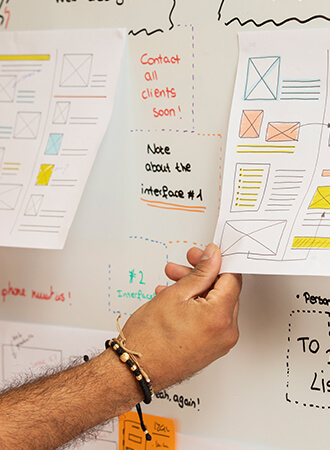 Contact
all
clients
soon!
Note
about the
interface #1
#2
Interface
phone
TO
Lis
again!